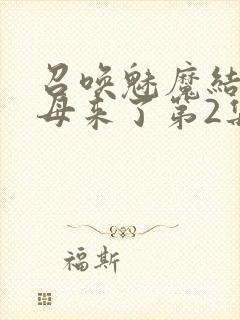 召唤魅魔结
母来了第2集
福斯